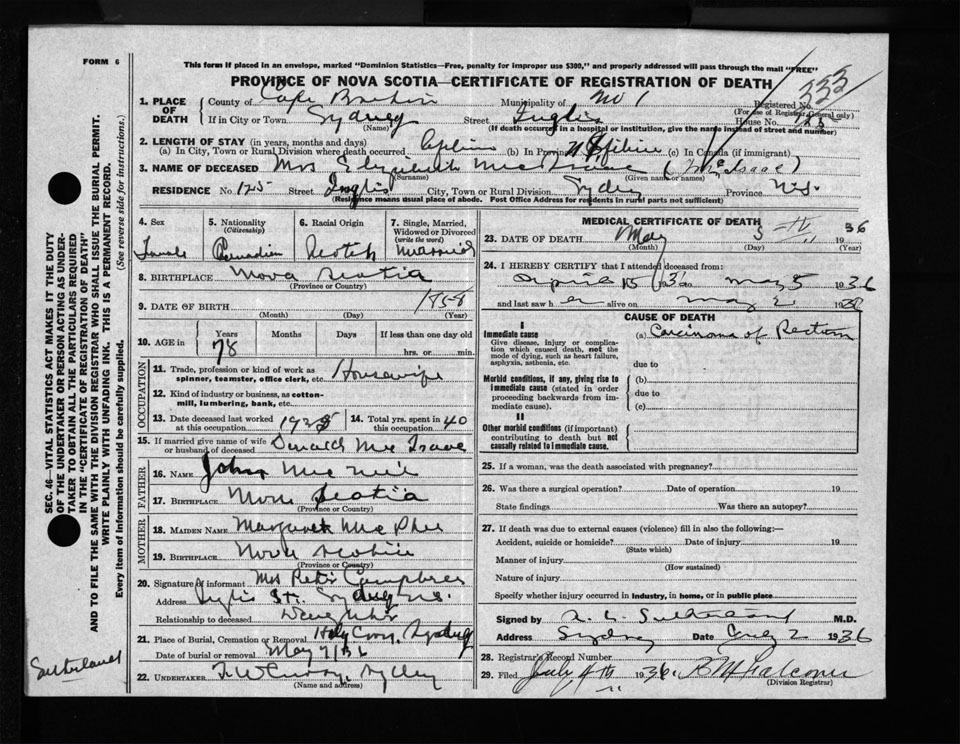 FORM 6
This form if placed in an envelope, marked "Dominion Statistics—Free, penalty for improper use $300," and properly addressed will pass through the mail "FREE"
PROVINCE OF NOVA SCOTIA—CERTIFICATE OF REGISTRATION OF DEATH
333
1. PLACE OF DEATH
County of Cape Breton Municipality of No 1 Registered No.
(For use of Registrar General only)
If in City or Town Sydney Street Inglis House No. 125
(Name) (If death occurred in a hospital or institution, give the name instead of street and number)
2. LENGTH OF STAY (in years, months and days)
(a) In City, Town or Rural Division where death occurred (b) In Prov. (c) In Canada (if immigrant)
3. NAME OF DECEASED Mrs Elizabeth Mac (McIsaac)
(Surname) (Given name or names)
RESIDENCE No. 125 Street Inglis City, Town or Rural Division Sydney Province N.S.
(Residence means usual place of abode. Post Office Address for residents in rural parts not sufficient)
4. Sex
Female
5. Nationality
(Citizenship)
Canadian
6. Racial Origin
Scotch
7. Single, Married, Widowed or Divorced
(write the word)
Married
8. BIRTHPLACE Nova Scotia
(Province or Country)
9. DATE OF BIRTH 1858
(Month) (Day) (Year)
10. AGE in
Years Months Days If less than one day old
78 hrs. or min.
OCCUPATION
11. Trade, profession or kind of work as spinner, teamster, office clerk, etc. Housewife
12. Kind of industry or business, as cotton-mill, lumbering, bank, etc.
13. Date deceased last worked at this occupation 1935
14. Total yrs. spent in this occupation 40
15. If married give name of wife or husband of deceased Donald Mc Isaac
FATHER
16. NAME John Mac Neil
17. BIRTHPLACE Nova Scotia
(Province or Country)
MOTHER
18. MAIDEN NAME Margaret Mac Phee
19. BIRTHPLACE Nova Scotia
(Province or Country)
20. Signature of informant Mrs Peter Campbell
Address Inglis St. Sydney N.S.
Relationship to deceased Daughter
21. Place of Burial, Cremation or Removal Holy Cross, Sydney
Date of burial or removal May 7/36
22. UNDERTAKER F.W. Curry, Sydney
(Name and address)
MEDICAL CERTIFICATE OF DEATH
23. DATE OF DEATH May 5th 1936
(Month) (Day) (Year)
24. I HEREBY CERTIFY that I attended deceased from:
April 15 1936 to May 5 1936
and last saw her alive on May 2 1936
CAUSE OF DEATH
I
Immediate cause
Give disease, injury or complication which caused death, not the mode of dying, such as heart failure, asphyxia, asthenia, etc.
(a) Carcinoma of Rectum
due to
Morbid conditions, if any, giving rise to immediate cause (stated in order proceeding backwards from immediate cause).
(b)
due to
(c)
II
Other morbid conditions (if important) contributing to death but not causally related to immediate cause.
25. If a woman, was the death associated with pregnancy?
26. Was there a surgical operation? Date of operation 19
State findings Was there an autopsy?
27. If death was due to external causes (violence) fill in also the following:—
Accident, suicide or homicide? Date of injury 19
(State which)
Manner of injury
(How sustained)
Nature of injury
Specify whether injury occurred in industry, in home, or in public place
Signed by Sutherland M.D.
Address Sydney Date July 2 1936
28. Registrar's Record Number
29. Filed July 4th 1936. Falconer
(Division Registrar)
SEC. 46—VITAL STATISTICS ACT MAKES IT THE DUTY OF THE UNDERTAKER OR PERSON ACTING AS UNDERTAKER TO OBTAIN ALL THE PARTICULARS REQUIRED IN THE "CERTIFICATE OF REGISTRATION OF DEATH" AND TO FILE THE SAME WITH THE DIVISION REGISTRAR WHO SHALL ISSUE THE BURIAL PERMIT.
WRITE PLAINLY WITH UNFADING INK. THIS IS A PERMANENT RECORD.
Every item of information should be carefully supplied. (See reverse side for instructions.)
Sutherland